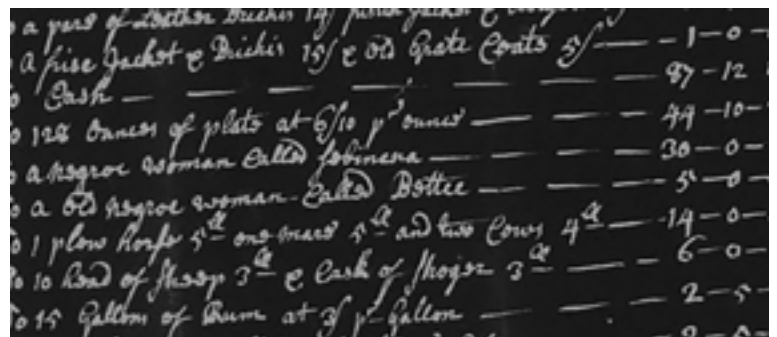 o a pare of Leather Brichis 14/
o A frise Jacket & Brichis 15/ & old Grate Coats 5/ — 1-0-
o Cash — 87-12
o 128 Ounces of plate at 6/10 pr ounce — 44-10-
o a negroe woman Called — 30-0-
o a Old negroe woman Called Bettee — 5-0-
o 1 plow horse 5£ one mare 5£ and two Cows 4£ — 14-0-
o 10 head of sheep 3£ & Cask of Shoger 3£ — 6-0-
o 15 Gallons of Rum at 3/ pr Gallon — 2-5-